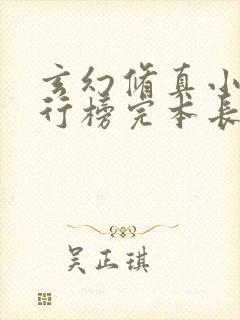 玄幻修真小
行榜完本长
吴正琪